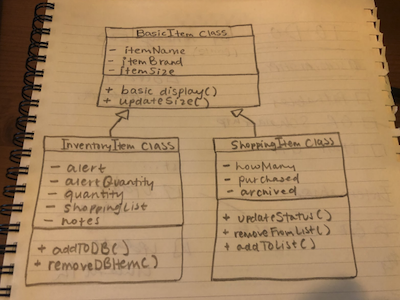 BasicItem Class
- itemName
- itemBrand
- itemSize
+ basic display()
+ updateSize()
InventoryItem Class
- alert
- alertQuantity
- quantity
- shoppingList
- notes
+ addToDB()
+ removeDBItem()
ShoppingItem Class
- howMany
- purchased
- archived
+ updateStatus()
+ removeFromList()
+ addToList()